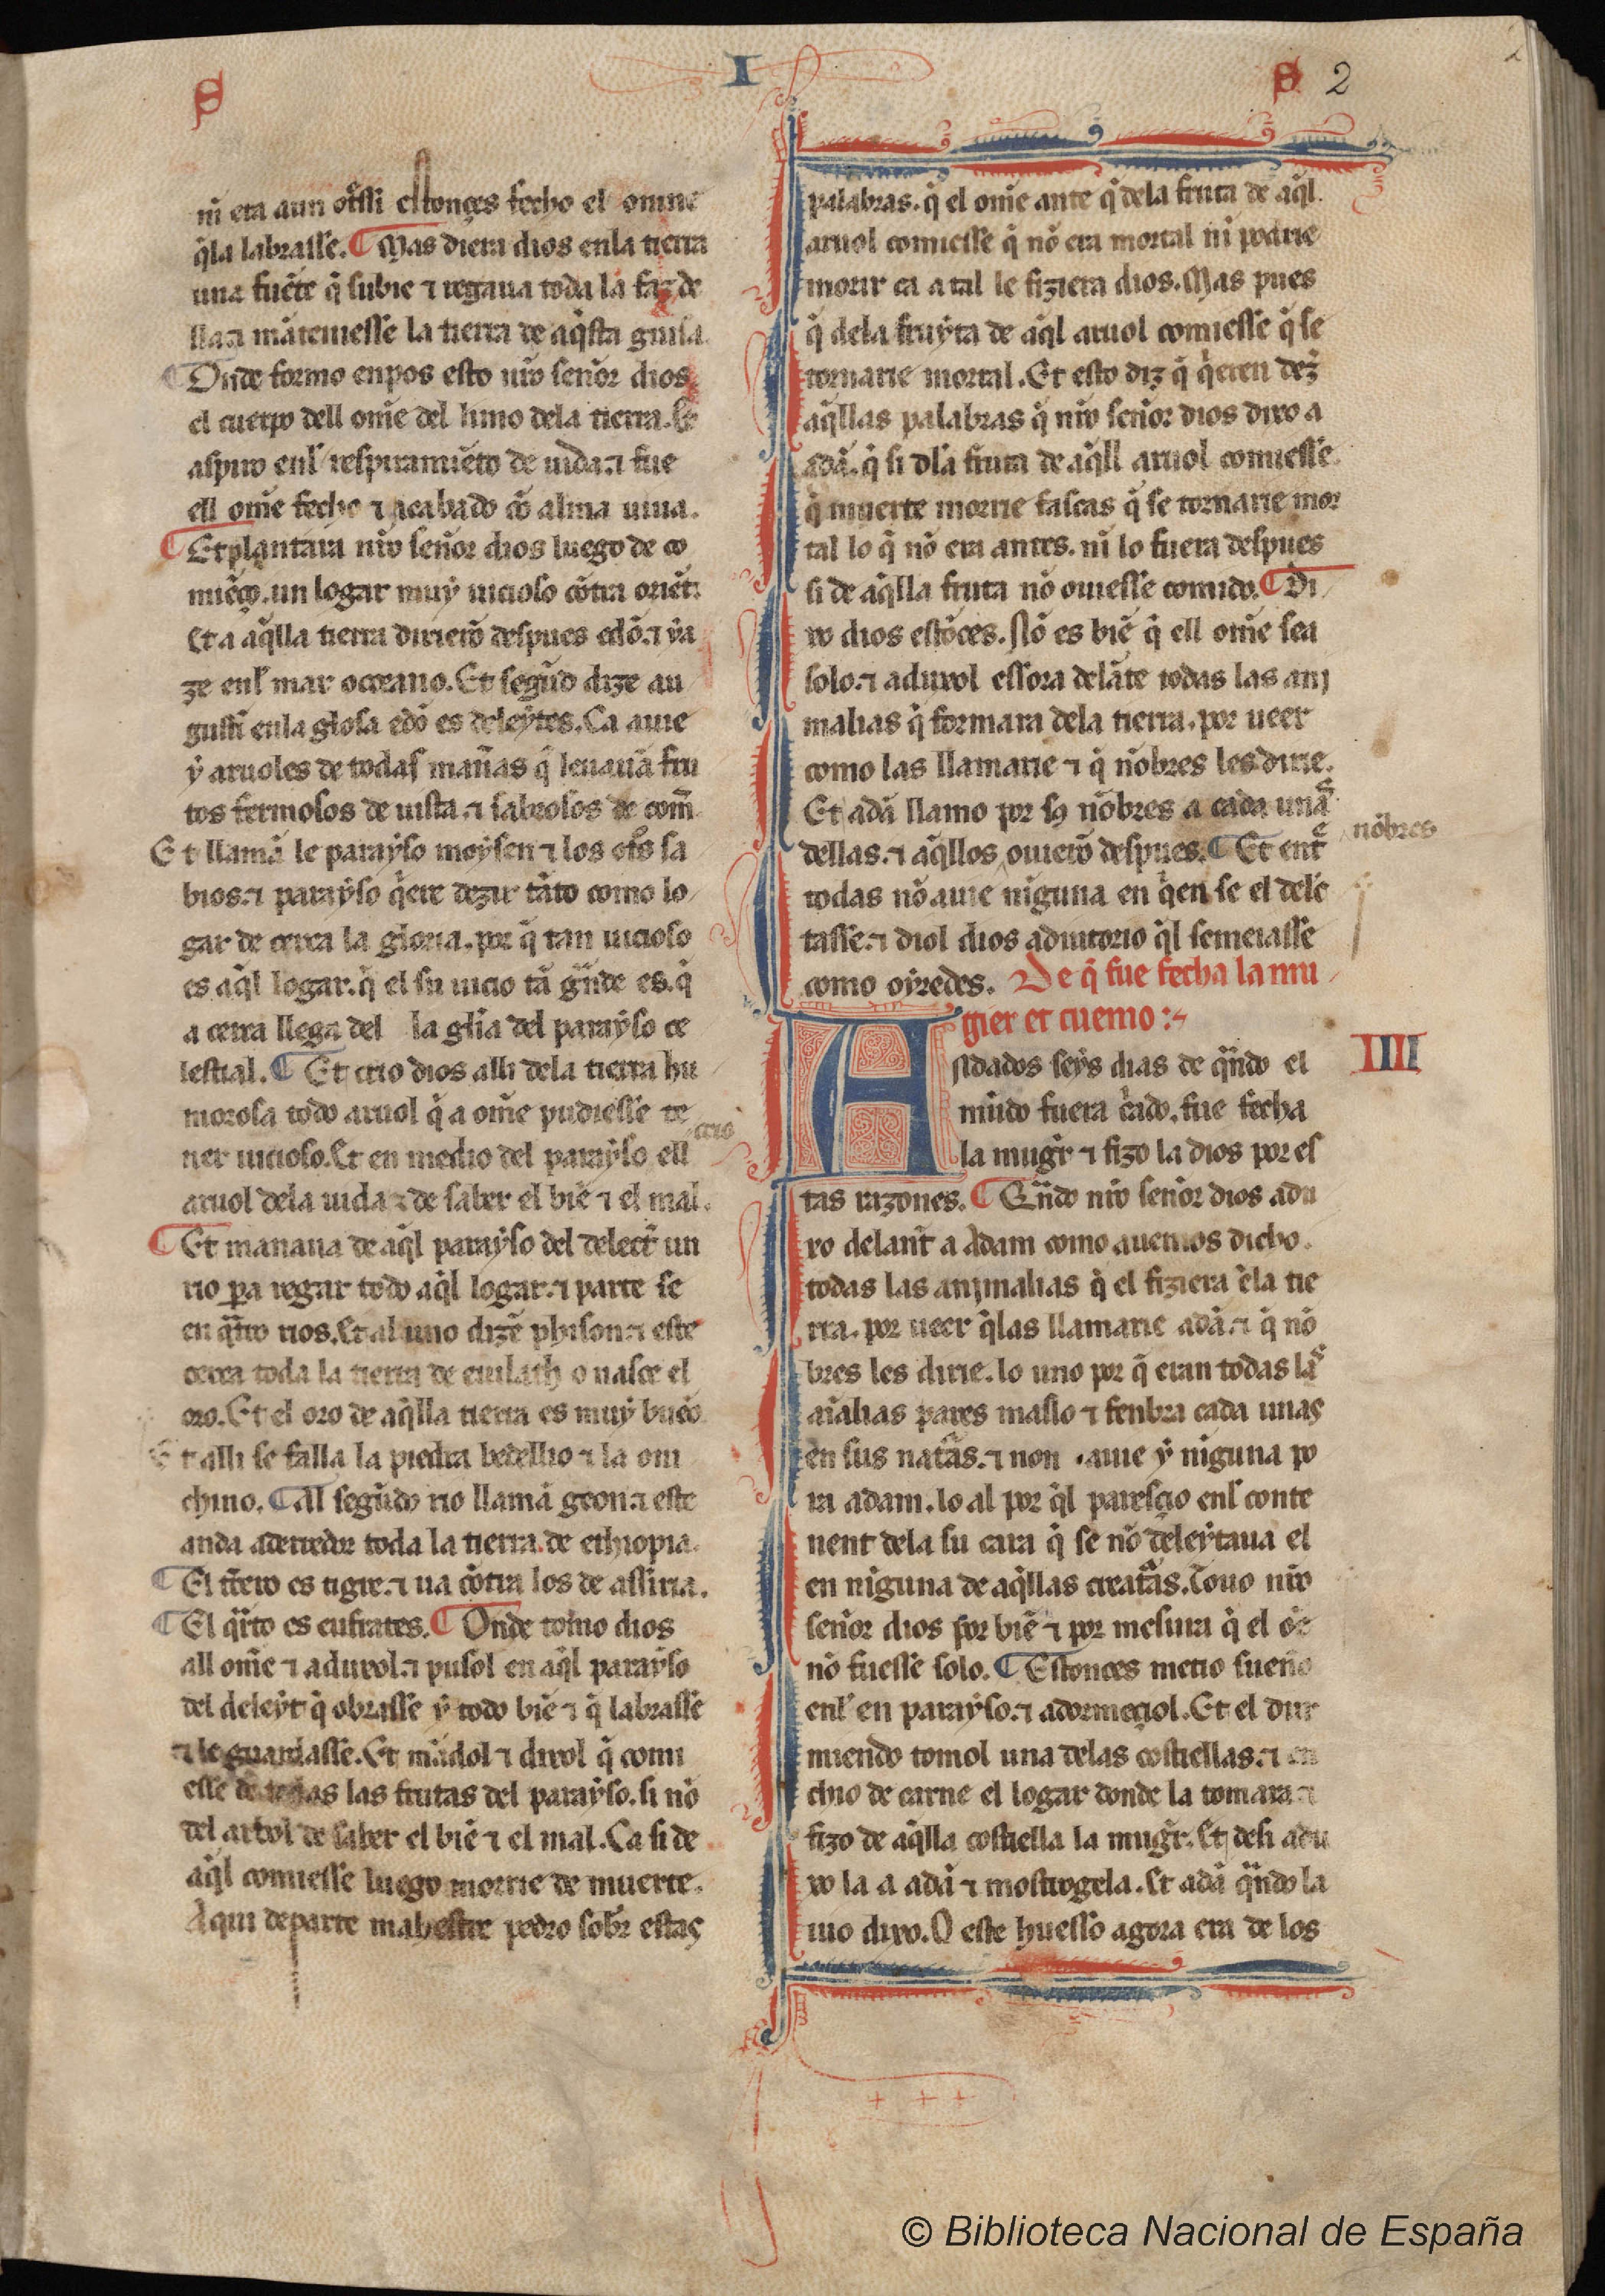 I
2
ni era aun otrssi estonçes fecho el omne
q̃la labrasse. ¶ Mas diera dios enla tierra
una fuẽte q̃ subie ⁊ regaua toda la faz de
lla. ⁊ mãteniesse la tierra de aq̃sta guisa.
¶ Onde formo enpos esto nr̃o señor dios
el cuerpo dell om̃e del limo dela tierra. Et
aspiro enl respiramiẽto de uida. ⁊ fue
ell om̃e fecho ⁊ acabado cõ alma uiua.
¶ Et plantara nr̃o señor dios luego de co
miẽço. un logar muẏ uicioso cõtra oriẽt.
Et a aq̃lla tierra dixierõ despues edẽ. ⁊ ẏa
ze enl mar occeano. Et segũd dize au
gustĩ enla glosa edẽ es deleẏtes. Ca auie
ẏ aruoles de todas mañas q̃ leuauã fru
tos fermosos de uista. ⁊ sabrosos de com̃
Et llamã le paraẏso moẏsen ⁊ los otr̃s sa
bios. ⁊ paraẏso q̃ere dezir tãto como lo
gar de cerca la gloria. por q̃ tan uicioso
es aq̃l logar. q̃ el su uicio tã gñde es. q̃
a cerca llega del la glĩa del paraẏso ce
lestial. ¶ Et crio dios alli dela tierra hu
morosa todo aruol q̃ a om̃e pudiesse te
crio
ner uicioso. Et en medio del paraẏso ell
aruol dela uida ⁊ de saber el biẽ ⁊ el mal.
¶ Et manaua de aq̃l paraẏso del delect̃ un
rio pa regar todo aq̃l logar. ⁊ parte se
en q̃tro rios. Et al uno dizẽ phison. ⁊ este
cerca toda la tierra de euilath o nasce el
oro. Et el oro de aq̃lla tierra es muẏ buẽo
Et alli se falla la piedra bedellio ⁊ la oni
chino. ¶ Al segũdo rio llamã geon. ⁊ este
anda aderredor toda la tierra de ethiopia.
¶ El t̃cero es tigre. ⁊ ua cõtra los de assiria.
¶ El q̃rto es eufrates. ¶ Onde tomo dios
all om̃e ⁊ aduxol. ⁊ pusol en aq̃l paraẏso
del deleẏt q̃ obrasse ẏ todo biẽ ⁊ q̃ labrasse
⁊ le guardasse. Et mãdol ⁊ dixol q̃ comi
esse de todas las frutas del paraẏso. si nõ
del arbol de saber el biẽ ⁊ el mal. Ca si de
aq̃l comiesse luego morrie de muerte.
Aqui departe mahestre pedro sobr̃ estas
palabras. q̃ el om̃e ante q̃ dela fruta de aq̃l
aruol comiesse q̃ nõ era mortal ni podrie
morir ca a tal le fiziera dios. Mas pues
q̃ dela fruẏta de aq̃l aruol comiesse q̃ se
tornarie mortal. Et esto diz q̃ q̃eren dez̃
aq̃llas palabras q̃ nr̃o señor dios dixo a
adã. q̃ si dla fruta de aq̃ll aruol comiesse
q̃ muerte morrie fascas q̃ se tornarie mor
tal lo q̃ nõ era antes. ni lo fuera despues
si de aq̃lla fruta nõ ouiesse comido. ¶ Di
xo dios estõces. Nõ es biẽ q̃ ell om̃e sea
solo. ⁊ aduxol essora delãte todas las ani
malias q̃ formara dela tierra. por ueer
como las llamarie ⁊ q̃ nõbres les dirie.
Et adã llamo por sus nõbres a cada una
nõbres
dellas. ⁊ aq̃llos ouierõ despues. ¶ Et entre
todas nõ auie niguna en q̃en se el dele
tasse. ⁊ diol dios adiutorio q̃l semeiasse
como oẏredes. De q̃ fue fecha la mu
gier et cuemo :
IIII
Andados seẏs dias de q̃ndo el
mũdo fuera c̃ado. fue fecha
la mugr̃ ⁊ fizo la dios por es
tas razones. ¶ Q̃ndo nr̃o señor dios adu
xo delant̃ a Adam como auemos dicho.
todas las animalias q̃ el fiziera ẽla tie
rra. por ueer q̃las llamarie adã. ⁊ q̃ nõ
bres les dirie. lo uno por q̃ eran todas las
aĩalias pares maslo ⁊ fenbra cada unas
en sus nat̃as. ⁊ non auie ẏ niguna po
ra adam. lo al por q̃l paresçio enl conte
nent dela su cara q̃ se nõ deleẏtaua el
en niguna de aq̃llas creat̃as. Touo nr̃o
señor dios por biẽ ⁊ por mesura q̃ el õe
nõ fuesse solo. ¶ Estonces metio sueño
enl en paraẏso. ⁊ adormeçiol. Et el dur
miendo tomol una delas costiellas. ⁊ en
chio de carne el logar donde la tomara ⁊
fizo de aq̃lla costiella la mugr̃. Et desi adu
xo la a adã ⁊ mostrogela. Et adã q̃ndo la
uio dixo. O este huesso agora era de los
© Biblioteca Nacional de España